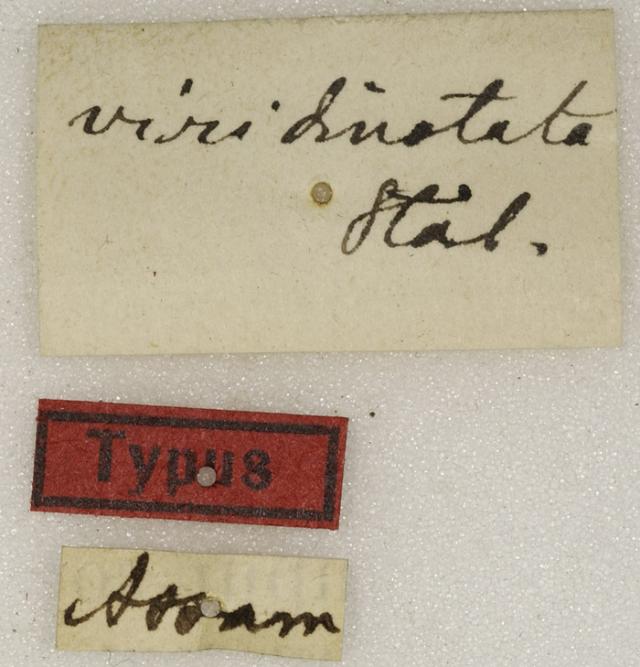 viridinotata
Stål.
Typus
Assam